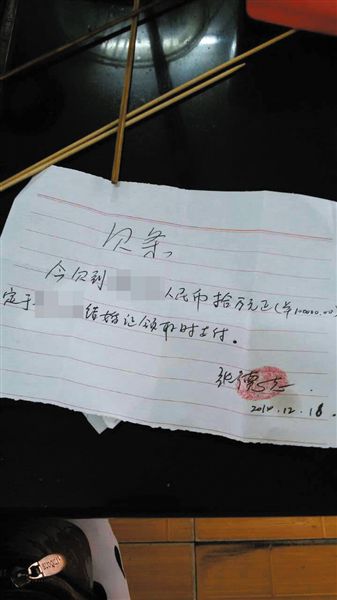 欠条
今欠到 人民币拾万元正(¥100000.00)
定于 结婚证领取时支付。
张德
201.12.18.